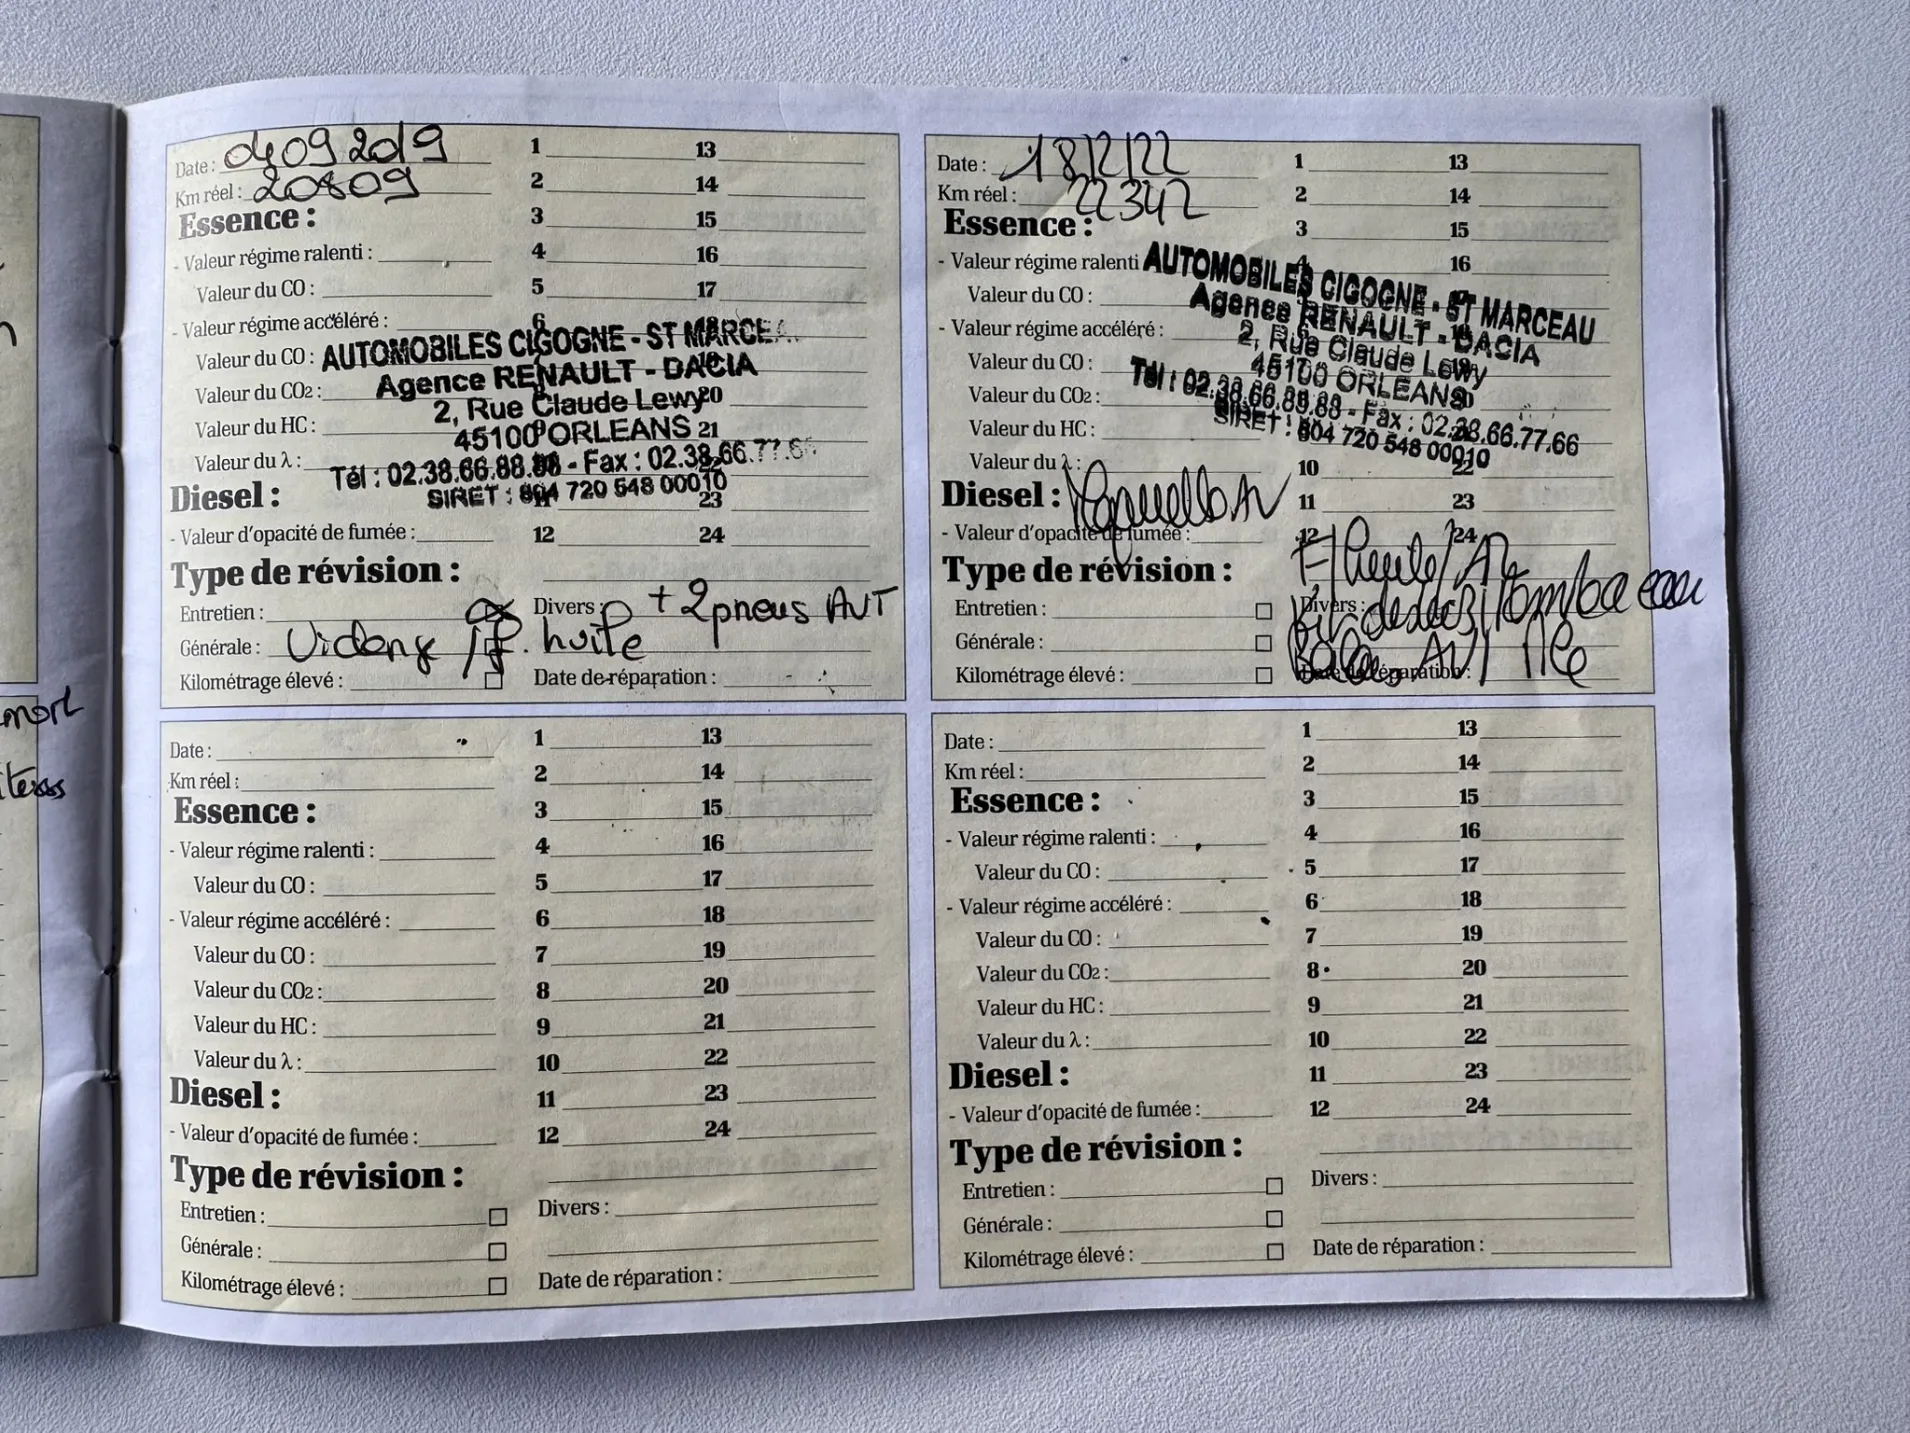 Date : 04 09 2019
Km réel : 20809
Essence :
- Valeur régime ralenti :
Valeur du CO :
- Valeur régime accéléré :
Valeur du CO :
Valeur du CO2 :
Valeur du HC :
Valeur du λ :
Diesel :
- Valeur d'opacité de fumée :
1 13
2 14
3 15
4 16
5 17
6
20
21
23
12 24
AUTOMOBILES CIGOGNE - ST MARCEA
Agence RENAULT - DACIA
2, Rue Claude Lewy
45100 ORLEANS
Tél : 02.38.66.88.88 - Fax : 02.38.66.77.66
SIRET : 804 720 548 00010
Type de révision :
Entretien :
Générale : Vidange / f. huile
Kilométrage élevé :
Divers : + 2 pneus AVT
Date de réparation :
Date : 18/2/22
Km réel : 22342
Essence :
- Valeur régime ralenti
Valeur du CO :
- Valeur régime accéléré :
Valeur du CO :
Valeur du CO2 :
Valeur du HC :
Valeur du λ :
Diesel :
- Valeur d'opacité de fumée :
1 13
2 14
3 15
4 16
10 22
11 23
12 24
AUTOMOBILES CIGOGNE - ST MARCEAU
Agence RENAULT - DACIA
2, Rue Claude Lewy
45100 ORLEANS
Tél : 02.38.66.88.88 - Fax : 02.38.66.77.66
SIRET : 804 720 548 00010
Type de révision :
Entretien :
Générale :
Kilométrage élevé :
F/huile/
Divers :
AVT
Date de réparation :
Date :
Km réel :
Essence :
- Valeur régime ralenti :
Valeur du CO :
- Valeur régime accéléré :
Valeur du CO :
Valeur du CO2 :
Valeur du HC :
Valeur du λ :
Diesel :
- Valeur d'opacité de fumée :
1 13
2 14
3 15
4 16
5 17
6 18
7 19
8 20
9 21
10 22
11 23
12 24
Type de révision :
Entretien :
Générale :
Kilométrage élevé :
Divers :
Date de réparation :
Date :
Km réel :
Essence :
- Valeur régime ralenti :
Valeur du CO :
- Valeur régime accéléré :
Valeur du CO :
Valeur du CO2 :
Valeur du HC :
Valeur du λ :
Diesel :
- Valeur d'opacité de fumée :
1 13
2 14
3 15
4 16
5 17
6 18
7 19
8 20
9 21
10 22
11 23
12 24
Type de révision :
Entretien :
Générale :
Kilométrage élevé :
Divers :
Date de réparation :